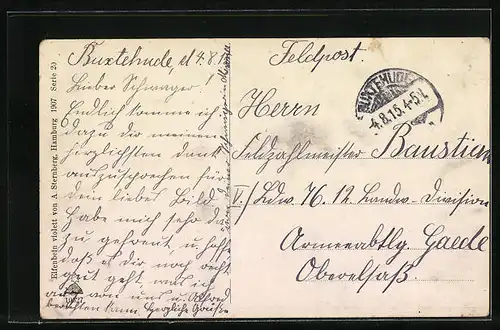 Buxtehude, d 4.8.15
Lieber Schwager!
Endlich komme ich
dazu dir meinen
herzlichsten Dank
auszusprechen für
dein liebes Bild
habe mich sehr da
zu gefreut u. hoffe
daß es dir noch recht
gut geht, was ich
auch von uns u. Alfred
berichten kann. Herzliche Grüße
Feldpost.
BUXTEHUDE
4.8.15. 4-5N.
Herrn
Feldzahlmeister Baustian
I/Ldw. 76. 12. Landw.-Division
Armeeabtlg. Gaede
Oberelsaß.
Elfenbein violett von A. Sternberg, Hamburg 1907 Serie 20